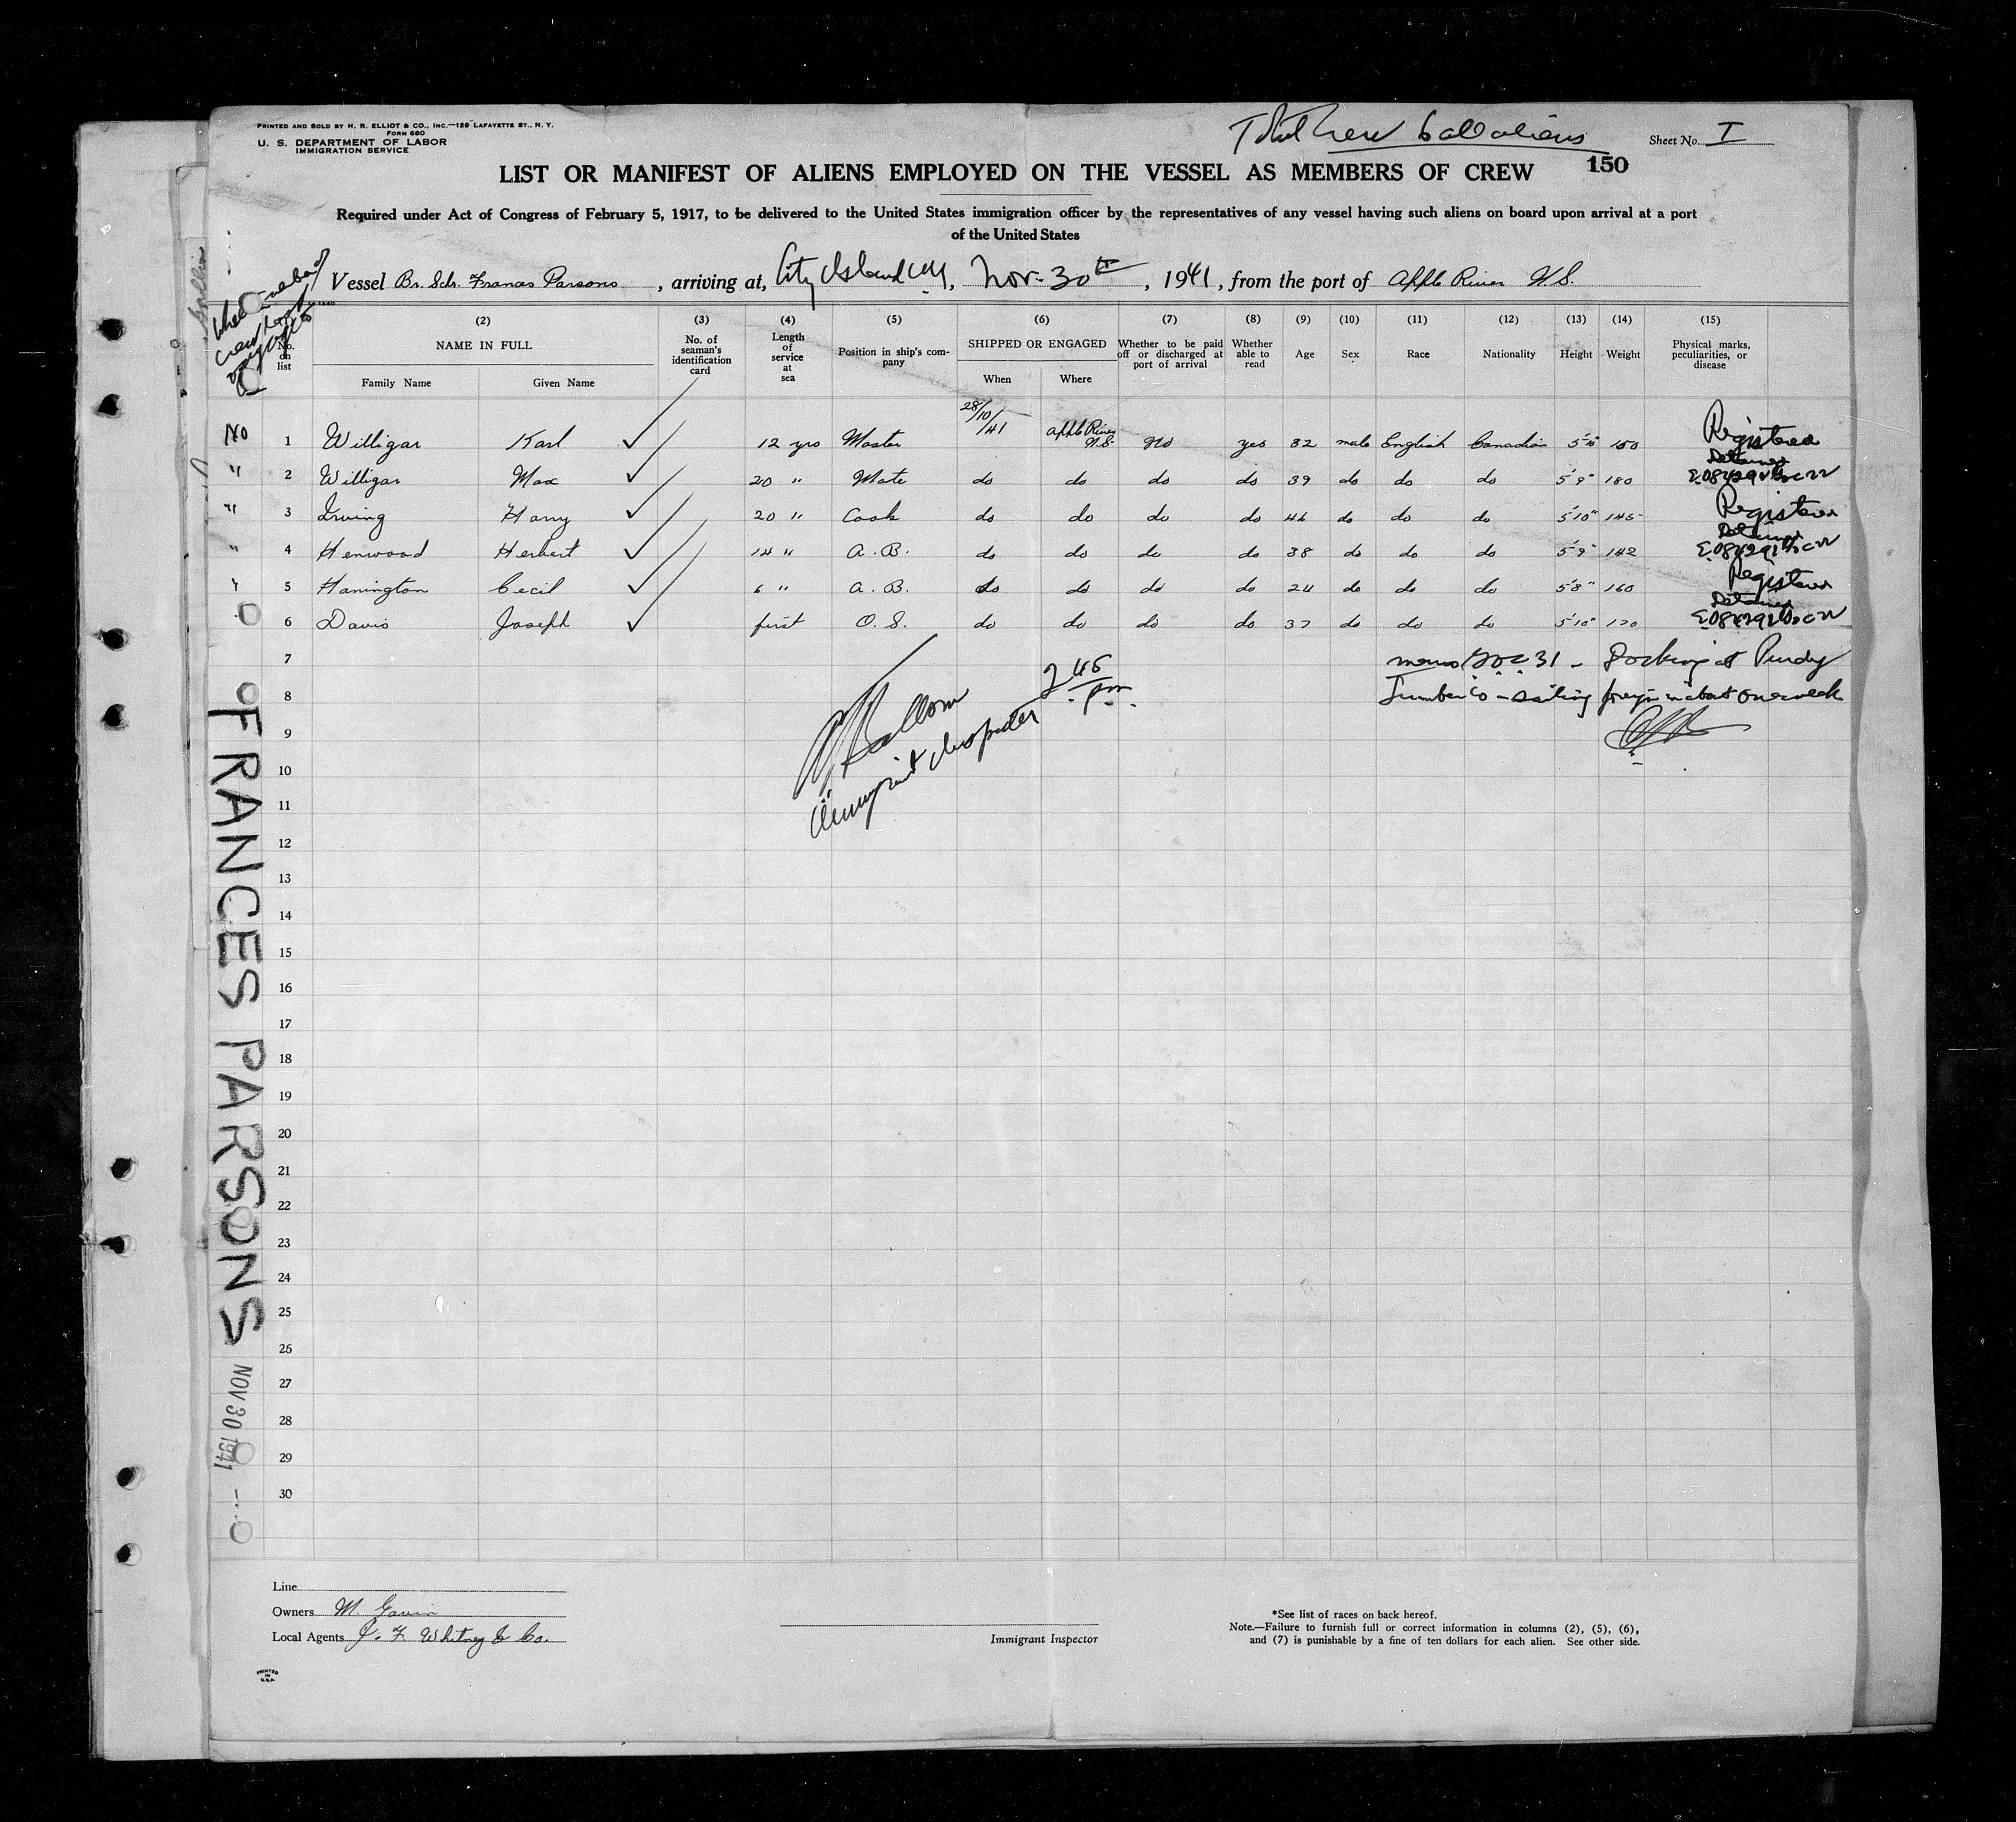 PRINTED AND SOLD BY H. R. ELLIOT & CO., INC.—129 LAFAYETTE ST., N. Y.
FORM 680
U. S. DEPARTMENT OF LABOR
IMMIGRATION SERVICE
Total Crew 6 all aliens
Sheet No. I
LIST OR MANIFEST OF ALIENS EMPLOYED ON THE VESSEL AS MEMBERS OF CREW 150
Required under Act of Congress of February 5, 1917, to be delivered to the United States immigration officer by the representatives of any vessel having such aliens on board upon arrival at a port
of the United States
Vessel Br. Sch. Frances Parsons, arriving at, City Island NY, Nov. 30th, 1941, from the port of Apple River N.S.
(2) (3) (4) (5) (6) (7) (8) (9) (10) (11) (12) (13) (14) (15)
No. on list NAME IN FULL Family Name Given Name No. of seaman's identification card Length of service at sea Position in ship's company SHIPPED OR ENGAGED When Where Whether to be paid off or discharged at port of arrival Whether able to read Age Sex Race Nationality Height Weight Physical marks, peculiarities, or disease
No 1 Willigar Karl 12 yrs Master 28/10/41 Apple River N.S. No yes 32 male English Canadian 5'10" 150 Registered
" 2 Willigar Max 20 " Mate do do do do 39 do do do 5'9" 180
" 3 Irving Harry 20 " Cook do do do do 46 do do do 5'10" 145 Registered
" 4 Henwood Herbert 14 " A.B. do do do do 38 do do do 5'9" 142
" 5 Hanington Cecil 6 " A.B. do do do do 24 do do do 5'8" 160 Registered
6 Davis Joseph first O.S. do do do do 37 do do do 5'10" 170
7
8
9
10
11
12
13
14
15
16
17
18
19
20
21
22
23
24
25
26
27
28
29
30
2 45 pm
Immigrant Inspector
memo Docking at Purdy
Lumber Co - sailing foreign in about one week
FRANCES PARSONS
NOV 30 1941
Line
Owners M. Gavin
Local Agents J. F. Whitney & Co.
Immigrant Inspector
*See list of races on back hereof.
Note.—Failure to furnish full or correct information in columns (2), (5), (6),
and (7) is punishable by a fine of ten dollars for each alien. See other side.
PRINTED
IN
U.S.A.